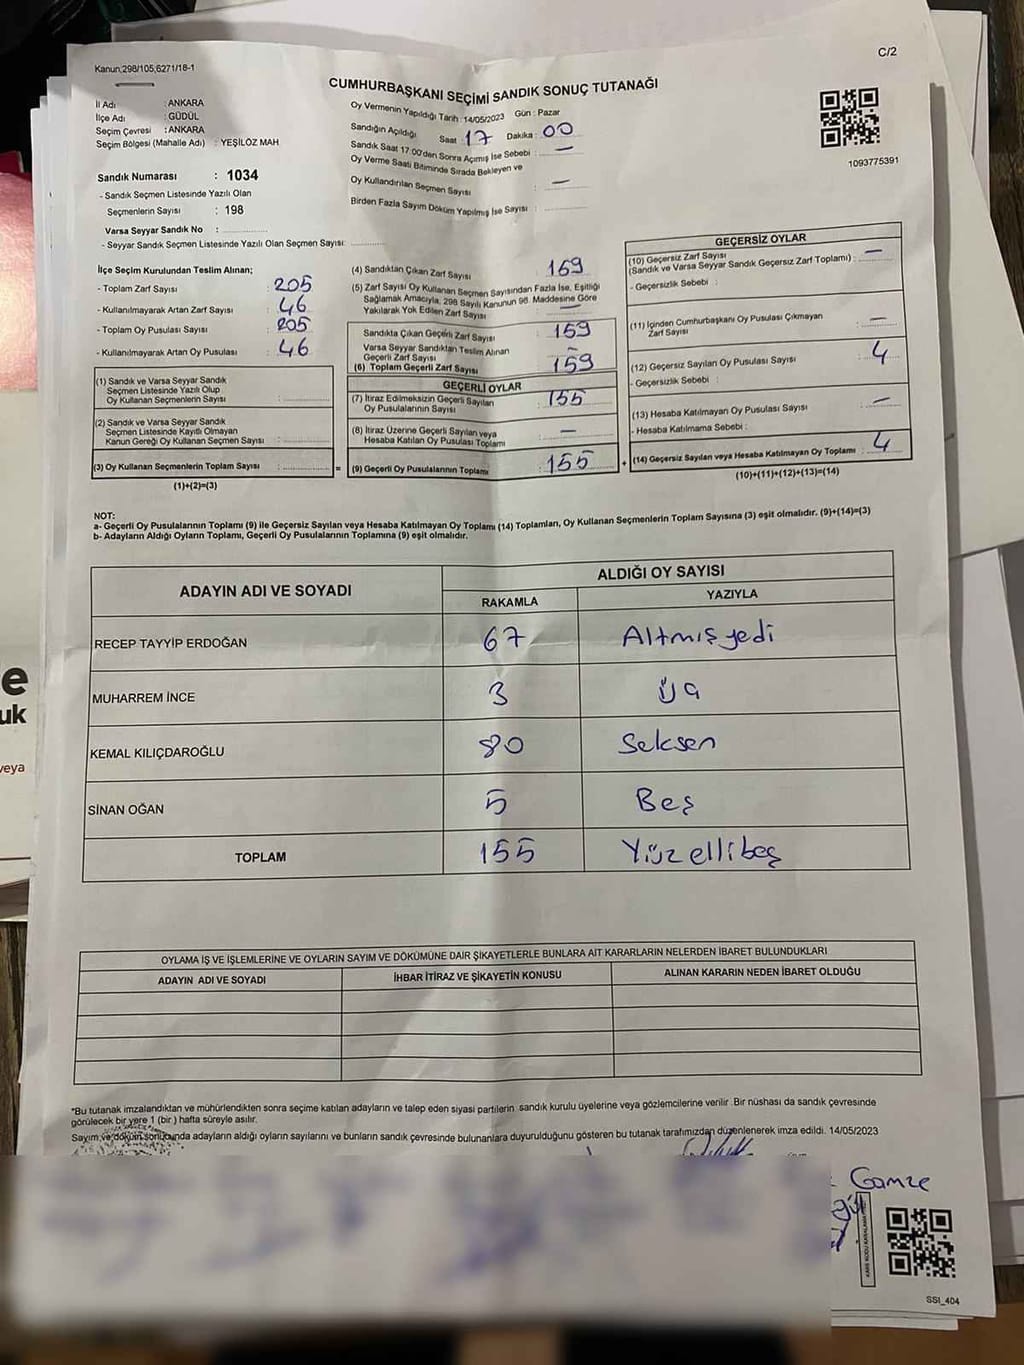 C/2
Kanun;298/105,6271/18-1
CUMHURBAŞKANI SEÇİMİ SANDIK SONUÇ TUTANAĞI
İl Adı : ANKARA
İlçe Adı : GÜDÜL
Seçim Çevresi : ANKARA
Seçim Bölgesi (Mahalle Adı) : YEŞİLÖZ MAH
Sandık Numarası : 1034
- Sandık Seçmen Listesinde Yazılı Olan
Seçmenlerin Sayısı : 198
Varsa Seyyar Sandık No :
- Seyyar Sandık Seçmen Listesinde Yazılı Olan Seçmen Sayısı:
Oy Vermenin Yapıldığı Tarih :14/05/2023 Gün : Pazar
Sandığın Açıldığı Saat 17 Dakika : 00
Sandık Saat 17:00'den Sonra Açımış İse Sebebi : —
Oy Verme Saati Bitiminde Sırada Bekleyen ve
Oy Kullandırılan Seçmen Sayısı : —
Birden Fazla Sayım Döküm Yapılmış İse Sayısı :
1093775391
İlçe Seçim Kurulundan Teslim Alınan;
- Toplam Zarf Sayısı : 205
- Kullanılmayarak Artan Zarf Sayısı : 46
- Toplam Oy Pusulası Sayısı : 205
- Kullanılmayarak Artan Oy Pusulası : 46
(1) Sandık ve Varsa Seyyar Sandık
Seçmen Listesinde Yazılı Olup
Oy Kullanan Seçmenlerin Sayısı :
(2) Sandık ve Varsa Seyyar Sandık
Seçmen Listesinde Kayıtlı Olmayan
Kanun Gereği Oy Kullanan Seçmen Sayısı :
(3) Oy Kullanan Seçmenlerin Toplam Sayısı : =
(1)+(2)=(3)
(4) Sandıktan Çıkan Zarf Sayısı : 159
(5) Zarf Sayısı Oy Kullanan Seçmen Sayısından Fazla İse, Eşitliği
Sağlamak Amacıyla, 298 Sayılı Kanunun 98. Maddesine Göre
Yakılarak Yok Edilen Zarf Sayısı : —
Sandıkta Çıkan Geçerli Zarf Sayısı : 159
Varsa Seyyar Sandıktan Teslim Alınan
Geçerli Zarf Sayısı : —
(6) Toplam Geçerli Zarf Sayısı : 159
GEÇERLİ OYLAR
(7) İtiraz Edilmeksizin Geçerli Sayılan
Oy Pusulalarının Sayısı : 155
(8) İtiraz Üzerine Geçerli Sayılan veya
Hesaba Katılan Oy Pusulası Toplamı : —
(9) Geçerli Oy Pusulalarının Toplamı : 155 +
GEÇERSİZ OYLAR
(10) Geçersiz Zarf Sayısı
(Sandık ve Varsa Seyyar Sandık Geçersiz Zarf Toplamı) : —
- Geçersizlik Sebebi :
(11) İçinden Cumhurbaşkanı Oy Pusulası Çıkmayan
Zarf Sayısı : —
(12) Geçersiz Sayılan Oy Pusulası Sayısı : 4
- Geçersizlik Sebebi :
(13) Hesaba Katılmayan Oy Pusulası Sayısı : —
- Hesaba Katılmama Sebebi :
(14) Geçersiz Sayılan veya Hesaba Katılmayan Oy Toplamı : 4
(10)+(11)+(12)+(13)=(14)
NOT:
a- Geçerli Oy Pusulalarının Toplamı (9) ile Geçersiz Sayılan veya Hesaba Katılmayan Oy Toplamı (14) Toplamları, Oy Kullanan Seçmenlerin Toplam Sayısına (3) eşit olmalıdır. (9)+(14)=(3)
b- Adayların Aldığı Oyların Toplamı, Geçerli Oy Pusulalarının Toplamına (9) eşit olmalıdır.
ADAYIN ADI VE SOYADI ALDIĞI OY SAYISI
RAKAMLA YAZIYLA
RECEP TAYYİP ERDOĞAN 67 Altmışyedi
MUHARREM İNCE 3 Üç
KEMAL KILIÇDAROĞLU 80 Seksen
SİNAN OĞAN 5 Beş
TOPLAM 155 Yüzellibeş
OYLAMA İŞ VE İŞLEMLERİNE VE OYLARIN SAYIM VE DÖKÜMÜNE DAİR ŞİKAYETLERLE BUNLARA AİT KARARLARIN NELERDEN İBARET BULUNDUKLARI
ADAYIN ADI VE SOYADI İHBAR İTİRAZ VE ŞİKAYETİN KONUSU ALINAN KARARIN NEDEN İBARET OLDUĞU
*Bu tutanak imzalandıktan ve mühürlendikten sonra seçime katılan adayların ve talep eden siyasi partilerin sandık kurulu üyelerine veya gözlemcilerine verilir .Bir nüshası da sandık çevresinde
görülecek bir yere 1 (bir ) hafta süreyle asılır.
Sayım ve döküm sonucunda adayların aldığı oyların sayılarını ve bunların sandık çevresinde bulunanlara duyurulduğunu gösteren bu tutanak tarafımızdan düzenlenerek imza edildi. 14/05/2023
Gamze
KARE KODU KARALAMAYINIZ
SSI_404
e
uk
veya